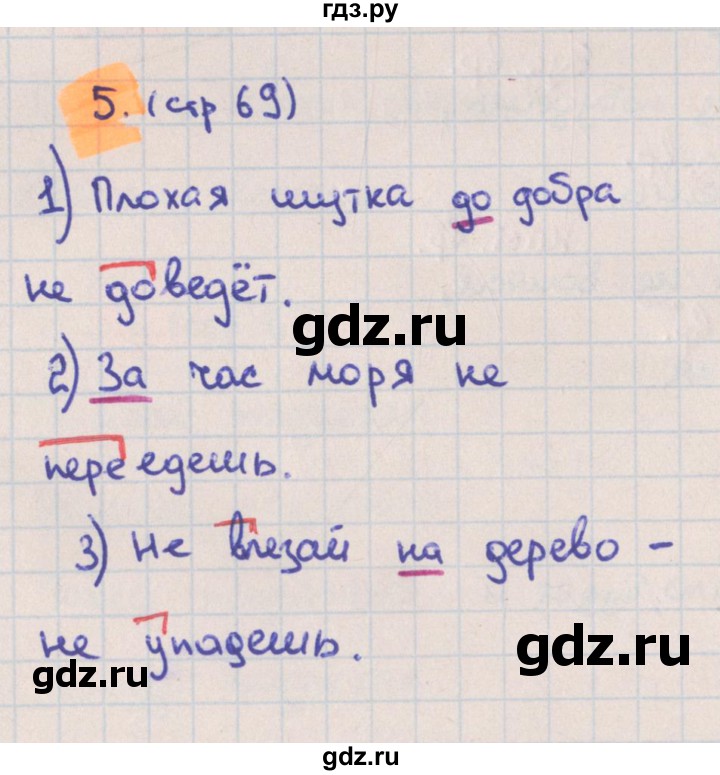 гдз.ру
5. (стр 69)
1) Плохая шутка до добра
не доведёт.
gdz.ru
2) За час моря не
переедешь.
3) Не влезай на дерево -
не упадешь.
gdz.ru
gdz.ru
gdz.ru